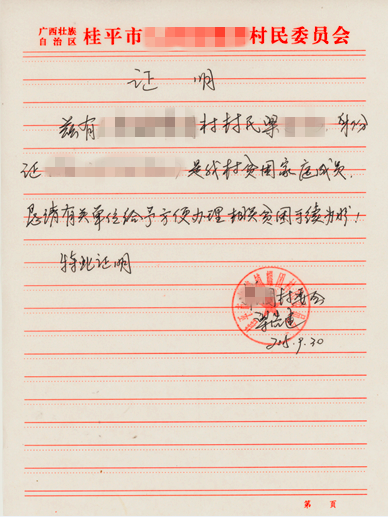 广西壮族
自治区
桂平市 村民委员会
证 明
兹有 村村民梁 ,身份
证 是我村贫困家庭成员,
恳请有关单位给予方便办理相关贫困手续为盼!
特此证明
村委会
2015.9.30
第 页